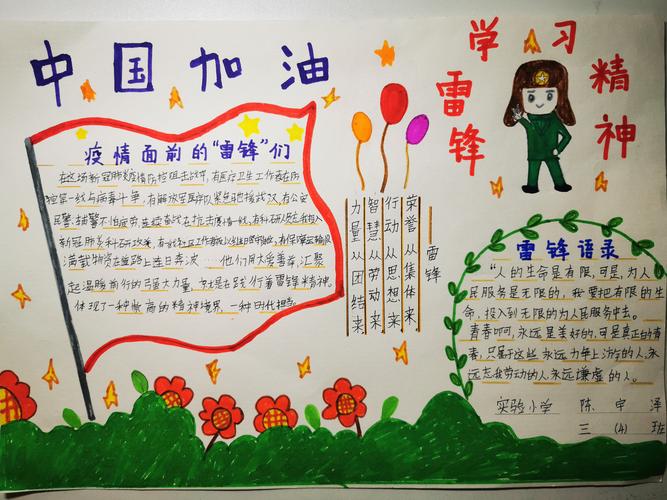 中国加油
学习
雷锋
精神
疫情面前的“雷锋”们
在这场新冠肺炎疫情防控阻击战中,有医疗卫生工作者在防
控第一线与病毒斗争,有解放军医疗队紧急驰援武汉,有公安
民警、辅警不怕疲劳、连续奋战在抗击疫情一线,有科研人员
新冠肺炎科研攻关,
满载物资在丝路上连日奔波……他们用大爱善益,汇聚
起温暖前行的弓虽大力量,好是在践行着雷锋精神。
体现了一种崇高的精神境界,一种时代担当。
荣誉从集体来
行动从思想来
智慧从劳动来
力量从团结来
雷锋
雷锋语录
“人的生命是有限,可是,为人
民服务是无限的,我要把有限的生
命,投入到无限的为人民服务中去。
青春呵,永远是美好的,可是真正的青
春,只属于这些永远力争上游的人,永
远忘我劳动的人,永远谦虚的人。
实验小学 陈宇泽
三(4)班